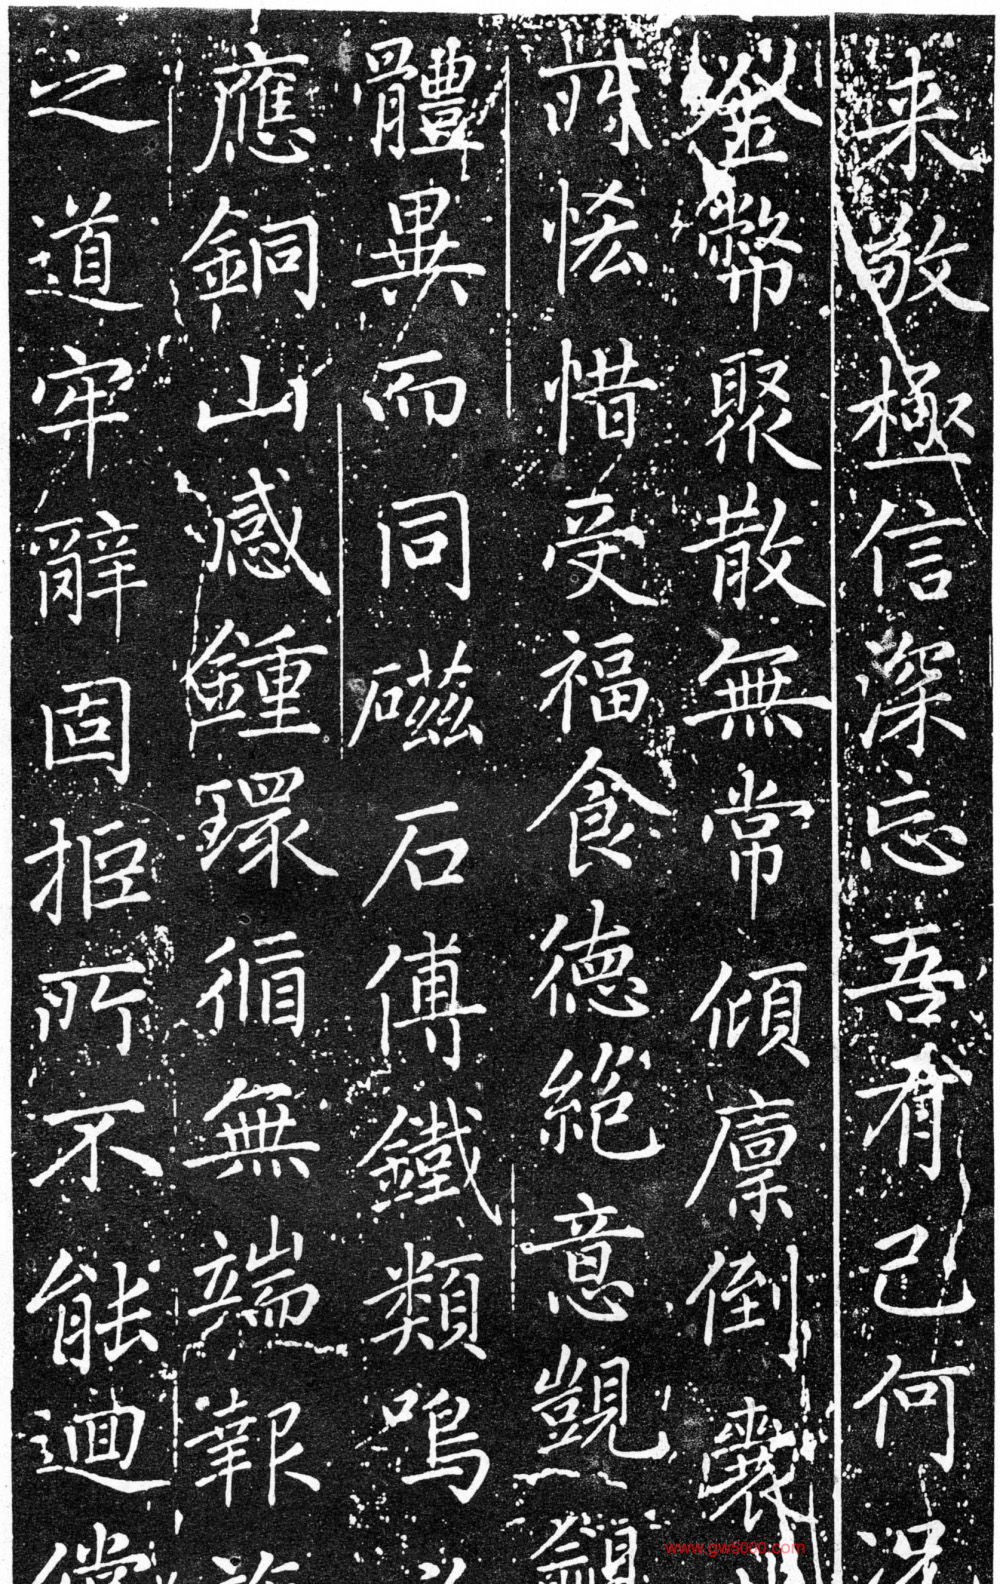 来敬極信深忘吾有己何
金幣聚散無常傾廩倒囊
所恡惜受福食德絕意覬
體異而同磁石傅鐵類鳴
應銅山感鍾環循無端報
之道牢辭固拒所不能迴
www.gw5000.com